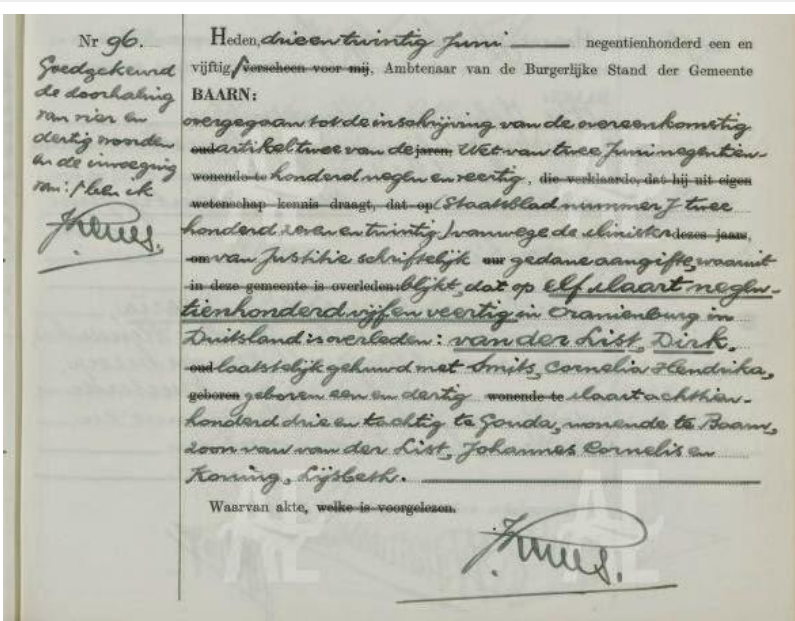 Nr 96.
Goedgekeurd
de doorhaling
van vier en
dertig woorden
en de invoeging
van: / ben ik
Heden, drie en twintig Juni negentienhonderd een en
vijftig / verscheen voor mij, Ambtenaar van de Burgerlijke Stand der Gemeente
BAARN:
overgegaan tot de inschrijving van de overeenkomstig
oud artikel twee van de jaren, Wet van twee Juni negentien-
wonende te honderd negen en veertig, die verklaarde, dat hij uit eigen
wetenschap kennis draagt, dat op (Staatsblad nummer J twee
honderd zeven en twintig) vanwege de Minister dezes jaars,
om van Justitie schriftelijk uur gedane aangifte, waaruit
in deze gemeente is overleden: blijkt, dat op elf Maart negen-
tienhonderd vijf en veertig in Oranienburg in
Duitsland is overleden: van der List, Dirk,
oud laatstelijk gehuwd met Smits, Cornelia Hendrika,
geboren geboren een en dertig wonende te Maart achttien-
honderd drie en tachtig te Gouda, wonende te Baarn,
zoon van van der List, Johannes Cornelis en
Koning, Lijsbeth.
Waarvan akte, welke is voorgelezen.